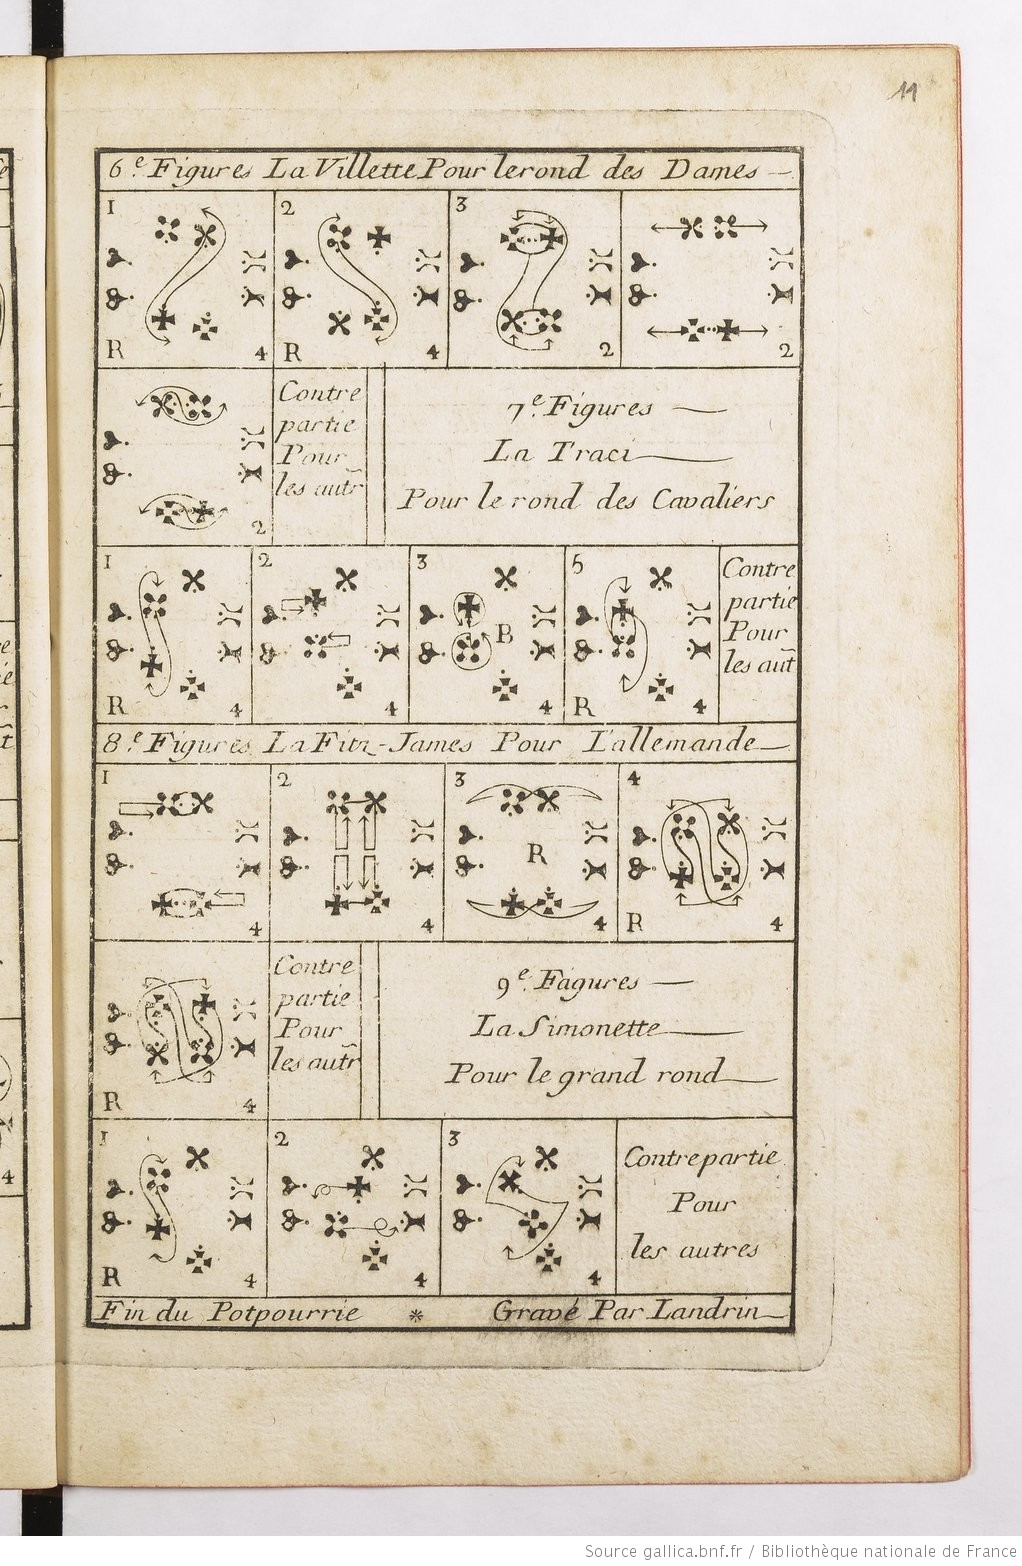 11
6.e Figures La Villette Pour lerond des Dames
1
2
3
R 4
R 4
2
2
Contre
partie
Pour
les autr̃
2
7.e Figures
La Traci
Pour le rond des Cavaliers
1
2
3
5
B
R 4
4
4
R 4
Contre
partie
Pour
les aut̃
8.e Figures La Fitz-James Pour L'allemande
1
2
3
4
R
4
4
4
R 4
R 4
Contre
partie
Pour
les autr̃
9.e Fagures
La Simonette
Pour le grand rond
1
2
3
R 4
4
4
Contrepartie
Pour
les autres
Fin du Potpourrie * Gravé Par Landrin
4
Source gallica.bnf.fr / Bibliothèque nationale de France